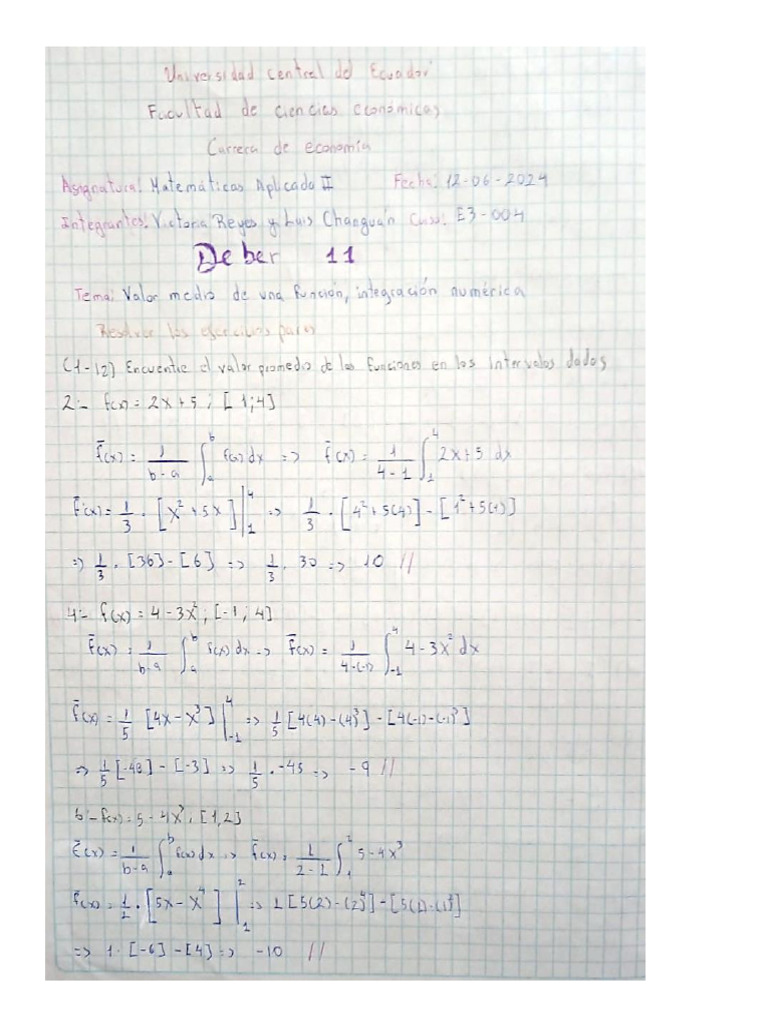 Universidad central del Ecuador
Facultad de ciencias económicas
Carrera de economía
Asignatura: Matemáticas Aplicada II Fecha: 12-06-2024
Integrantes: Victoria Reyes y Luis Changuán Curso: E3-004
Deber 11
Tema: Valor medio de una función, integración numérica
Resolver los ejercicios pares
(1-12) Encuentre el valor promedio de las funciones en los intervalos dados
2.- f(x) = 2x+5 ; [1;4]
f̄(x) = 1/(b-a) ∫_a^b f(x) dx => f̄(x) = 1/(4-1) ∫_1^4 2x+5 dx
f̄(x) = 1/3 · [x²+5x] |_1^4 => 1/3 · [4²+5(4)] - [1²+5(1)]
=> 1/3 · [36] - [6] => 1/3 · 30 => 10 //
4.- f(x) = 4-3x² ; [-1 ; 4]
f̄(x) = 1/(b-a) ∫_a^b f(x) dx => f̄(x) = 1/(4-(-1)) ∫_-1^4 4-3x² dx
f̄(x) = 1/5 [4x-x³] |_-1^4 => 1/5 [4(4)-(4)³] - [4(-1)-(-1)³]
=> 1/5 [-48] - [-3] => 1/5 · -45 => -9 //
6.- f(x) = 5-4x³ ; [1,2]
f̄(x) = 1/(b-a) ∫_a^b f(x) dx => f̄(x) = 1/(2-1) ∫_1^2 5-4x³
f̄(x) = 1/1 · [5x-x⁴] |_1^2 => 1 [5(2)-(2)⁴] - [5(1)-(1)⁴]
=> 1 · [-6] - [4] => -10 //